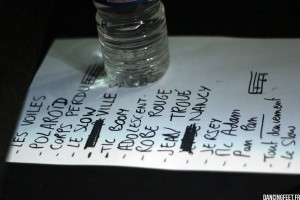 - LES VOILES
- POLAROÏD
- CORPS PERDU
- LE SLOW
- VILLE
- TIC BOOM
- ADOLESCENT
- ROBE ROUGE
- JEAN TROUÉ
- NANCY
- JERSEY
- Mc Adam
- Pan Pan
Tout
- le Slow
DANCINGFEET.FR